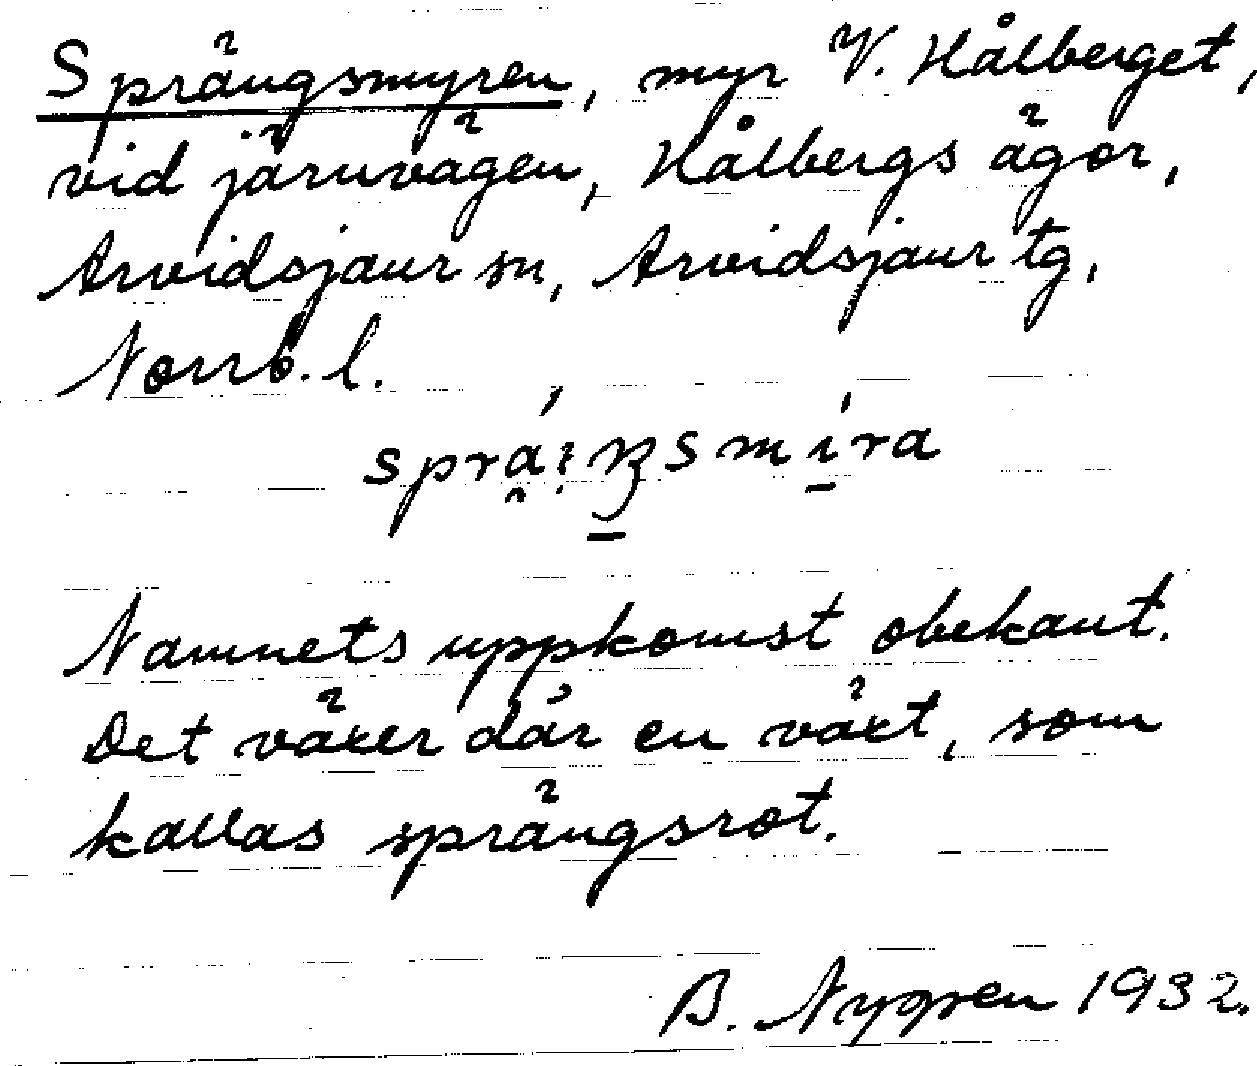 Sprängsmyren, myr V. Hålberget,
vid järnvägen, Hålbergs ägor,
Arvidsjaur sn, Arvidsjaur tg,
Norrb. l.
Namnets uppkomst obekant.
Det växer där en växt, som
kallas sprängsrot.
B. Nygren 1932.